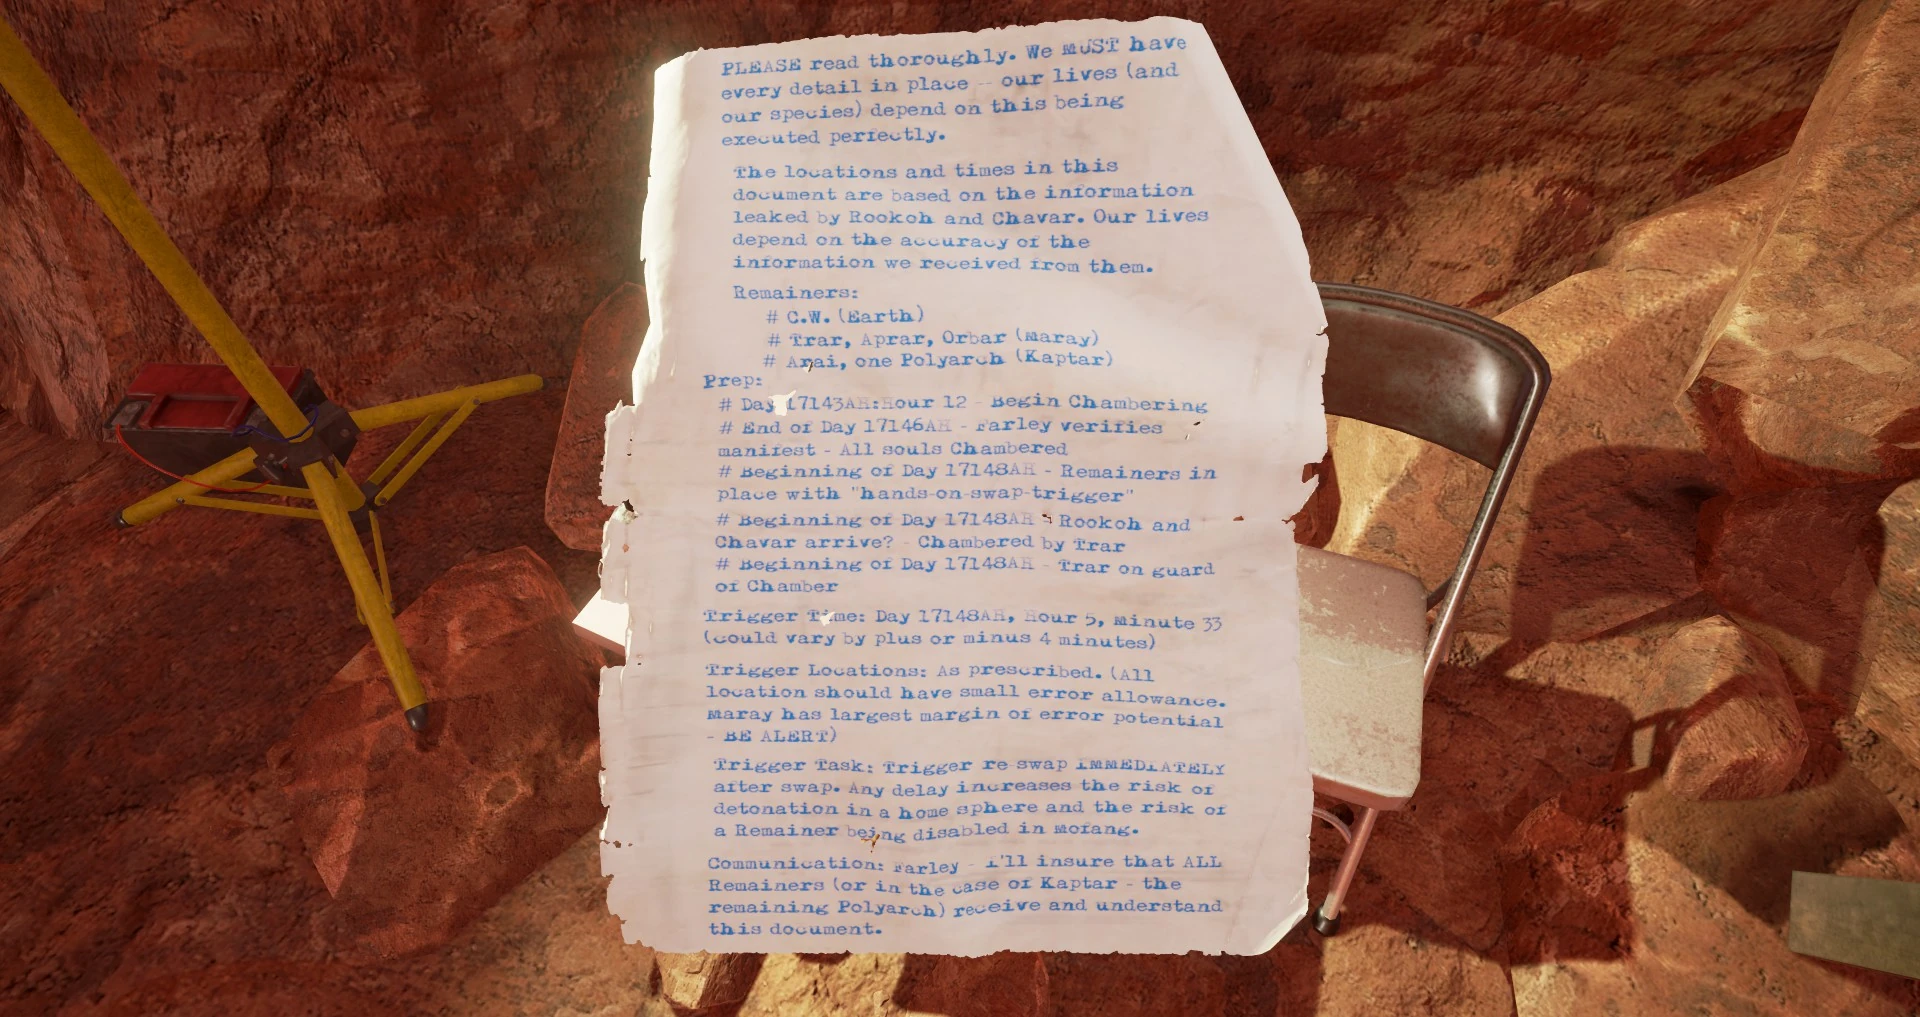 PLEASE read thoroughly. We MUST have
every detail in place -- our lives (and
our species) depend on this being
executed perfectly.
The locations and times in this
document are based on the information
leaked by Rookoh and Chavar. Our lives
depend on the accuracy of the
information we received from them.
Remainers:
# C.W. (Earth)
# Trar, Aprar, Orbar (Maray)
# Arai, one Polyarch (Kaptar)
Prep:
# Day 17143AH:Hour 12 - Begin Chambering
# End of Day 17146AH - Farley verifies
manifest - All souls Chambered
# Beginning of Day 17148AH - Remainers in
place with "hands-on-swap-trigger"
# Beginning of Day 17148AH - Rookoh and
Chavar arrive? - Chambered by Trar
# Beginning of Day 17148AH - Trar on guard
of Chamber
Trigger Time: Day 17148AH, Hour 5, Minute 33
(could vary by plus or minus 4 minutes)
Trigger Locations: As prescribed. (All
location should have small error allowance.
Maray has largest margin of error potential
- BE ALERT)
Trigger Task: Trigger re-swap IMMEDIATELY
after swap. Any delay increases the risk of
detonation in a home sphere and the risk of
a Remainer being disabled in Mofang.
Communication: Farley - I'll insure that ALL
Remainers (or in the case of Kaptar - the
remaining Polyarch) receive and understand
this document.